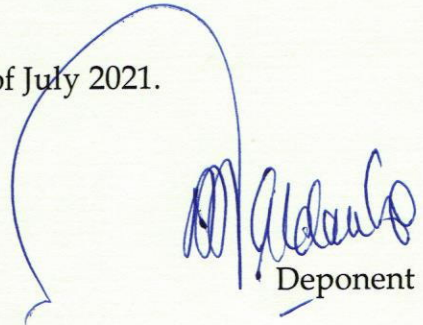 of July 2021.
Deponent